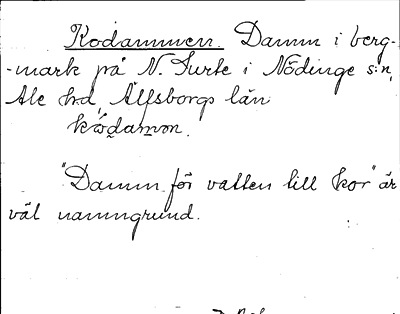 Kodammen. Damm i berg-
-mark på N. Surte i Nödinge s:n,
Ale hd, Älfsborgs län
kódamon.
"Damm för vatten till kor" är
väl namngrund.